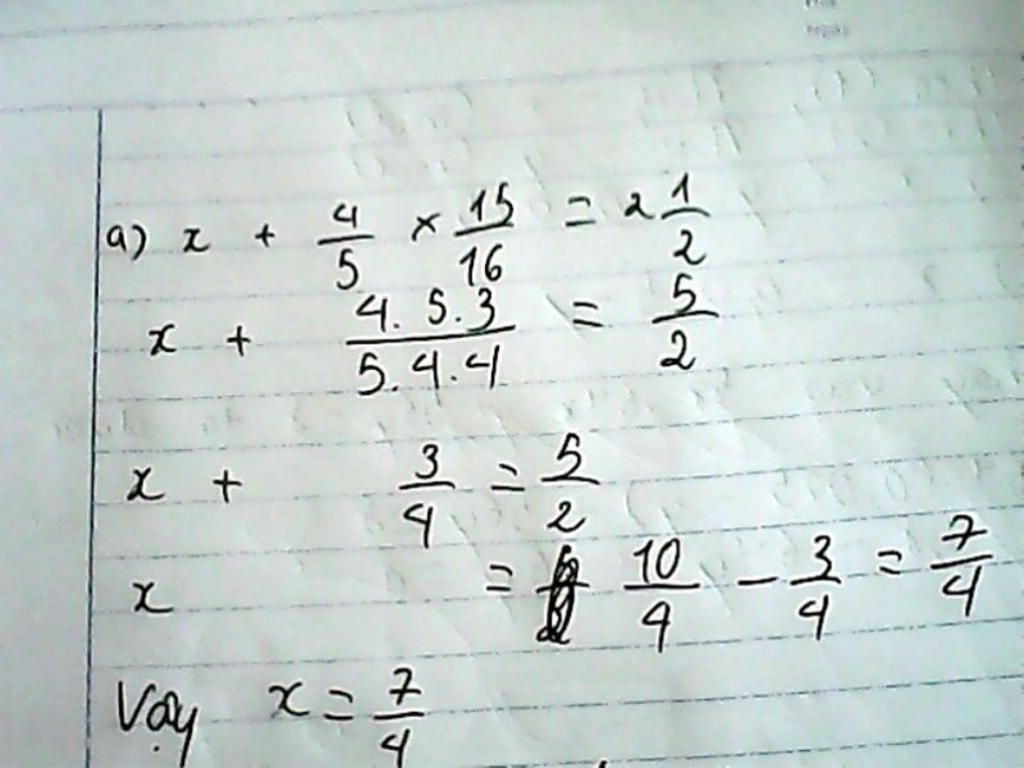 a) x + 4/5 × 15/16 = 2 1/2
x + 4.5.3/5.4.4 = 5/2
x + 3/4 = 5/2
x = 10/4 - 3/4 = 7/4
Vậy x = 7/4